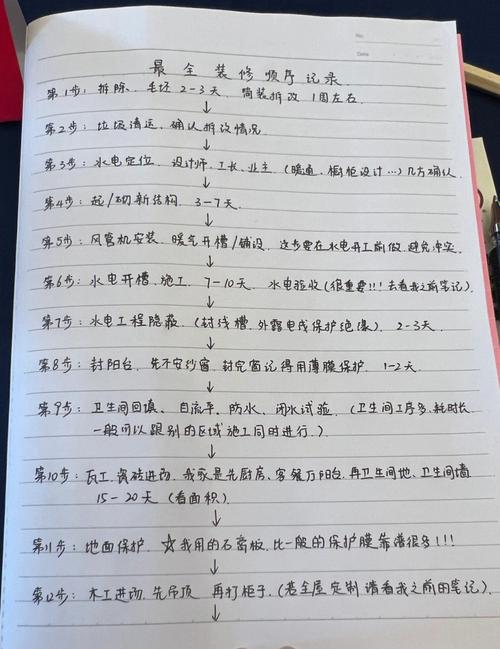 No.
Date
最全装修顺序记录
第1步: 拆除、毛坯2-3天 简装拆改 1周左右.
↓
第2步: 垃圾清运、确认拆改情况
↓
第3步: 水电定位. 设计师.工长.业主 (暖通. 橱柜设计...)几方确认.
↓
第4步: 起/砌新结构. 3-7天.
↓
第5步: 风管机安装. 暖气开槽/铺设. 这步要在水电开工前做.避免冲突.
↓
第6步: 水电开槽.施工. 7-10天. 水电验收(很重要!!!去看我之前笔记).
↓
第7步: 水电工程隐蔽. (封线槽.外露电线保护绝缘). 2-3天.
↓
第8步: 封阳台. 先不安纱窗.封完窗记得用薄膜保护. 1-2天.
↓
第9步: 卫生间回填、自流平、防水、闭水试验. (卫生间工序多.耗时长.
一般可以跟别的区域施工同时进行.)
↓
第10步: 瓦工.瓷砖进场.我家是先厨房、客餐厅阳台.再卫生间地、卫生间墙
15-20天 (看面积).
↓
第11步: 地面保护. ☆我用的石膏板.比一般的保护膜靠谱很多!!!
↓
第12步: 木工进场.先吊顶 再打柜子.(若全屋定制.请看我之前的笔记).
↓